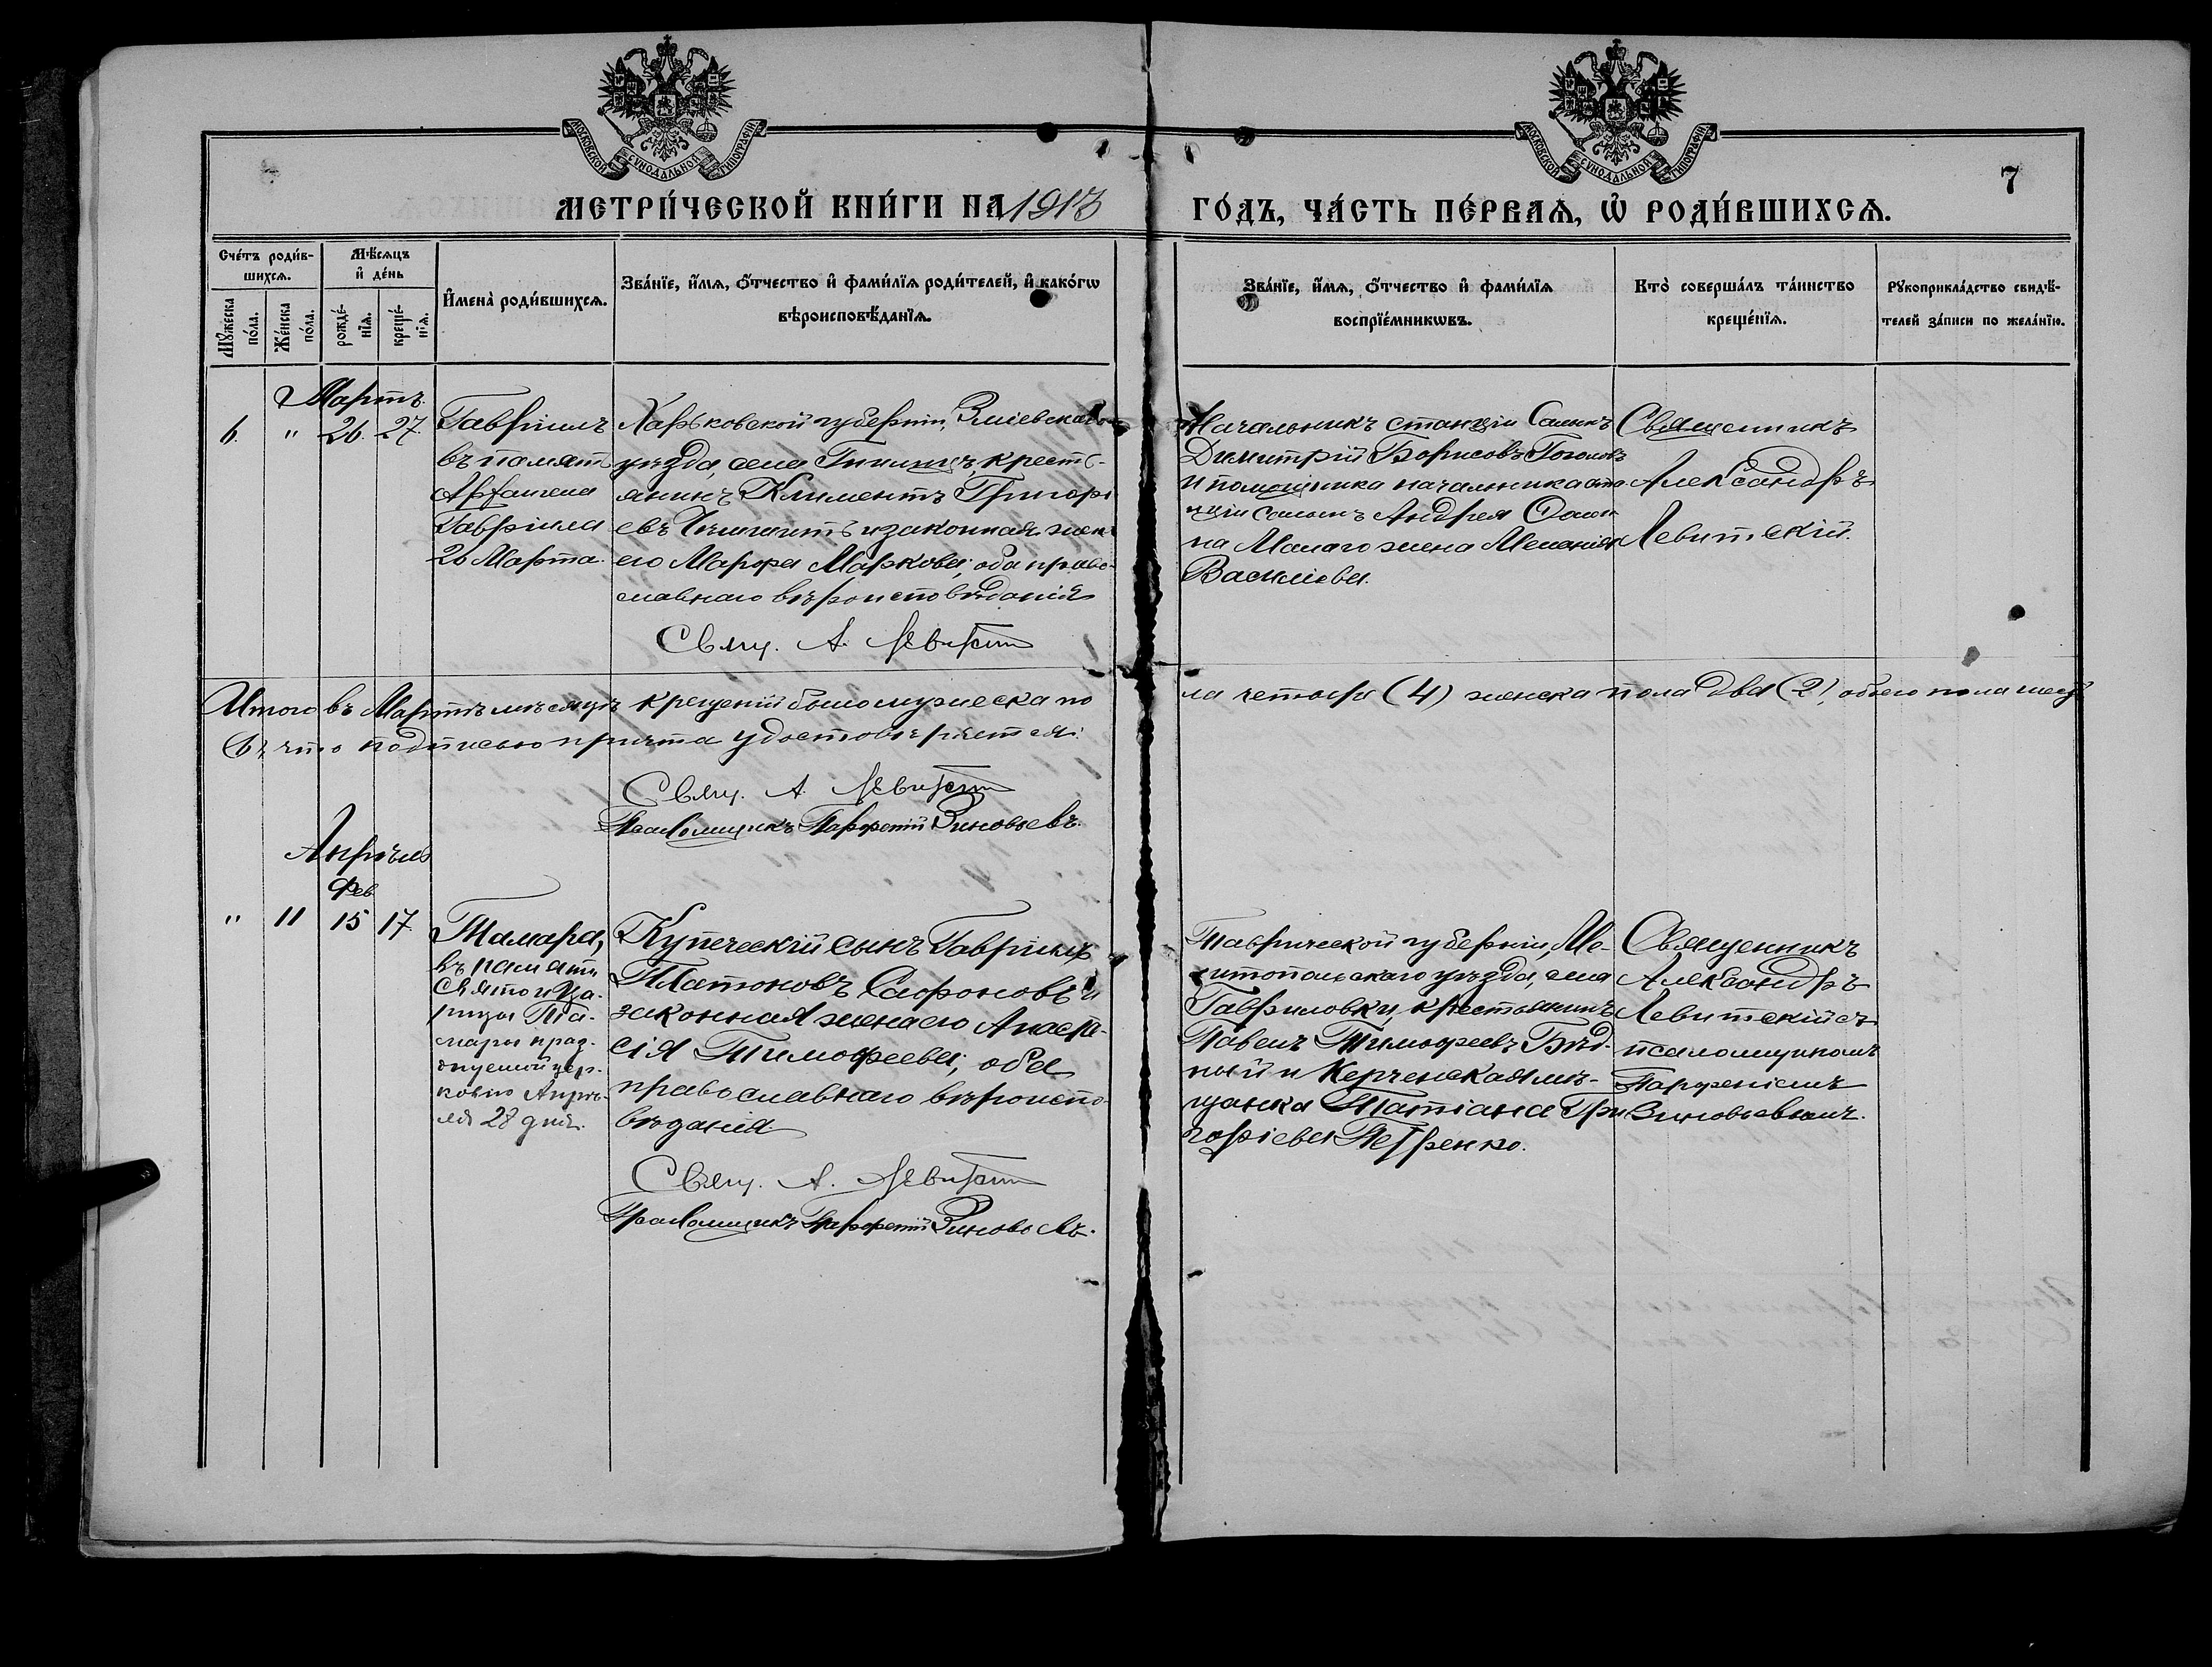 МОСКОВСКОЙ СѴНОДАЛЬНОЙ ТИПОГРАФІИ
МОСКОВСКОЙ СѴНОДАЛЬНОЙ ТИПОГРАФІИ
7
МЕТРИ́ЧЕСКОЙ КНИ́ГИ НА 1913 ГО́ДЪ, ЧА́СТЬ ПЕ́РВАѦ, Ѡ҆ РОДИ́ВШИХСѦ.
Сче́тъ роди́в-
шихсѧ.
Мѣ́сѧцъ
и҆ де́нь
Мꙋ́жеска
по́ла.
Же́нска
по́ла.
рожде́-
нїѧ.
креще́-
нїѧ.
И҆мена̀ роди́вшихсѧ.
Зва́нїе, и҆́мѧ, ѻ҆́тчество и҆ фами́лїѧ роди́телей, и҆ како́гѡ
вѣроисповѣ́данїѧ.
Зва́нїе, и҆́мѧ, ѻ҆́тчество и҆ фами́лїѧ
воспрїе́мникѡвъ.
Кто̀ соверша́лъ та́инство
креще́нїѧ.
Рꙋкоприкла́дство свидѣ́-
телей за́писи по жела́нїю.
Мартъ.
6. " 26. 27.
Гавріилъ
въ память
Архангела
Гавріила
26 Марта.
Харьковской губерніи, Зміевскаго
уѣзда, села Гнилицъ, кресть-
янинъ Климентъ Григорі
евъ и законная жен
его Марфа Маркова; оба право-
славнаго вѣроисповѣданія
Свящ. А. Левитскій
Начальникъ станціи Салынъ
Димитрій Борисовъ Гоголовъ
и помощника начальника ста
нціи Салынъ Андрея
на Малаго жена Меланія
Василіева.
Священникъ
Александръ
Левитскій.
Итого въ Мартѣ мѣсяцѣ крещеній было мужеска по
ла четыре (4) женска пола два (2), обоего пола шесть
(6), что подписью причта удостовѣряется:
Свящ. А. Левитскій
Псаломщикъ Парфеній Зиновьевъ.
Апрѣль
Фев.
" 11 15 17.
Тамара,
въ память
Святой Ца-
рицы Та-
мары праз-
днуемой цер-
ковію Апрѣ-
ля 28 дня.
Купеческій сынъ Гавріилъ
Платоновъ Сафоновъ и
законная жена его Анаста-
сія Тимофеева; оба
православнаго вѣроиспо-
вѣданія
Свящ. А. Левитскій
Псаломщикъ Парфеній Зиновьевъ.
Таврической губерніи, Ме-
литопольскаго уѣзда, села
Гавриловки, крестьянинъ
Павелъ Тимофеевъ Бѣд-
ный и Керченская мѣ-
щанка Татіана Гри
горіева Петренко.
Священникъ
Александръ
Левитскій съ
псаломщикомъ
Парфеніемъ
Зиновьевымъ.